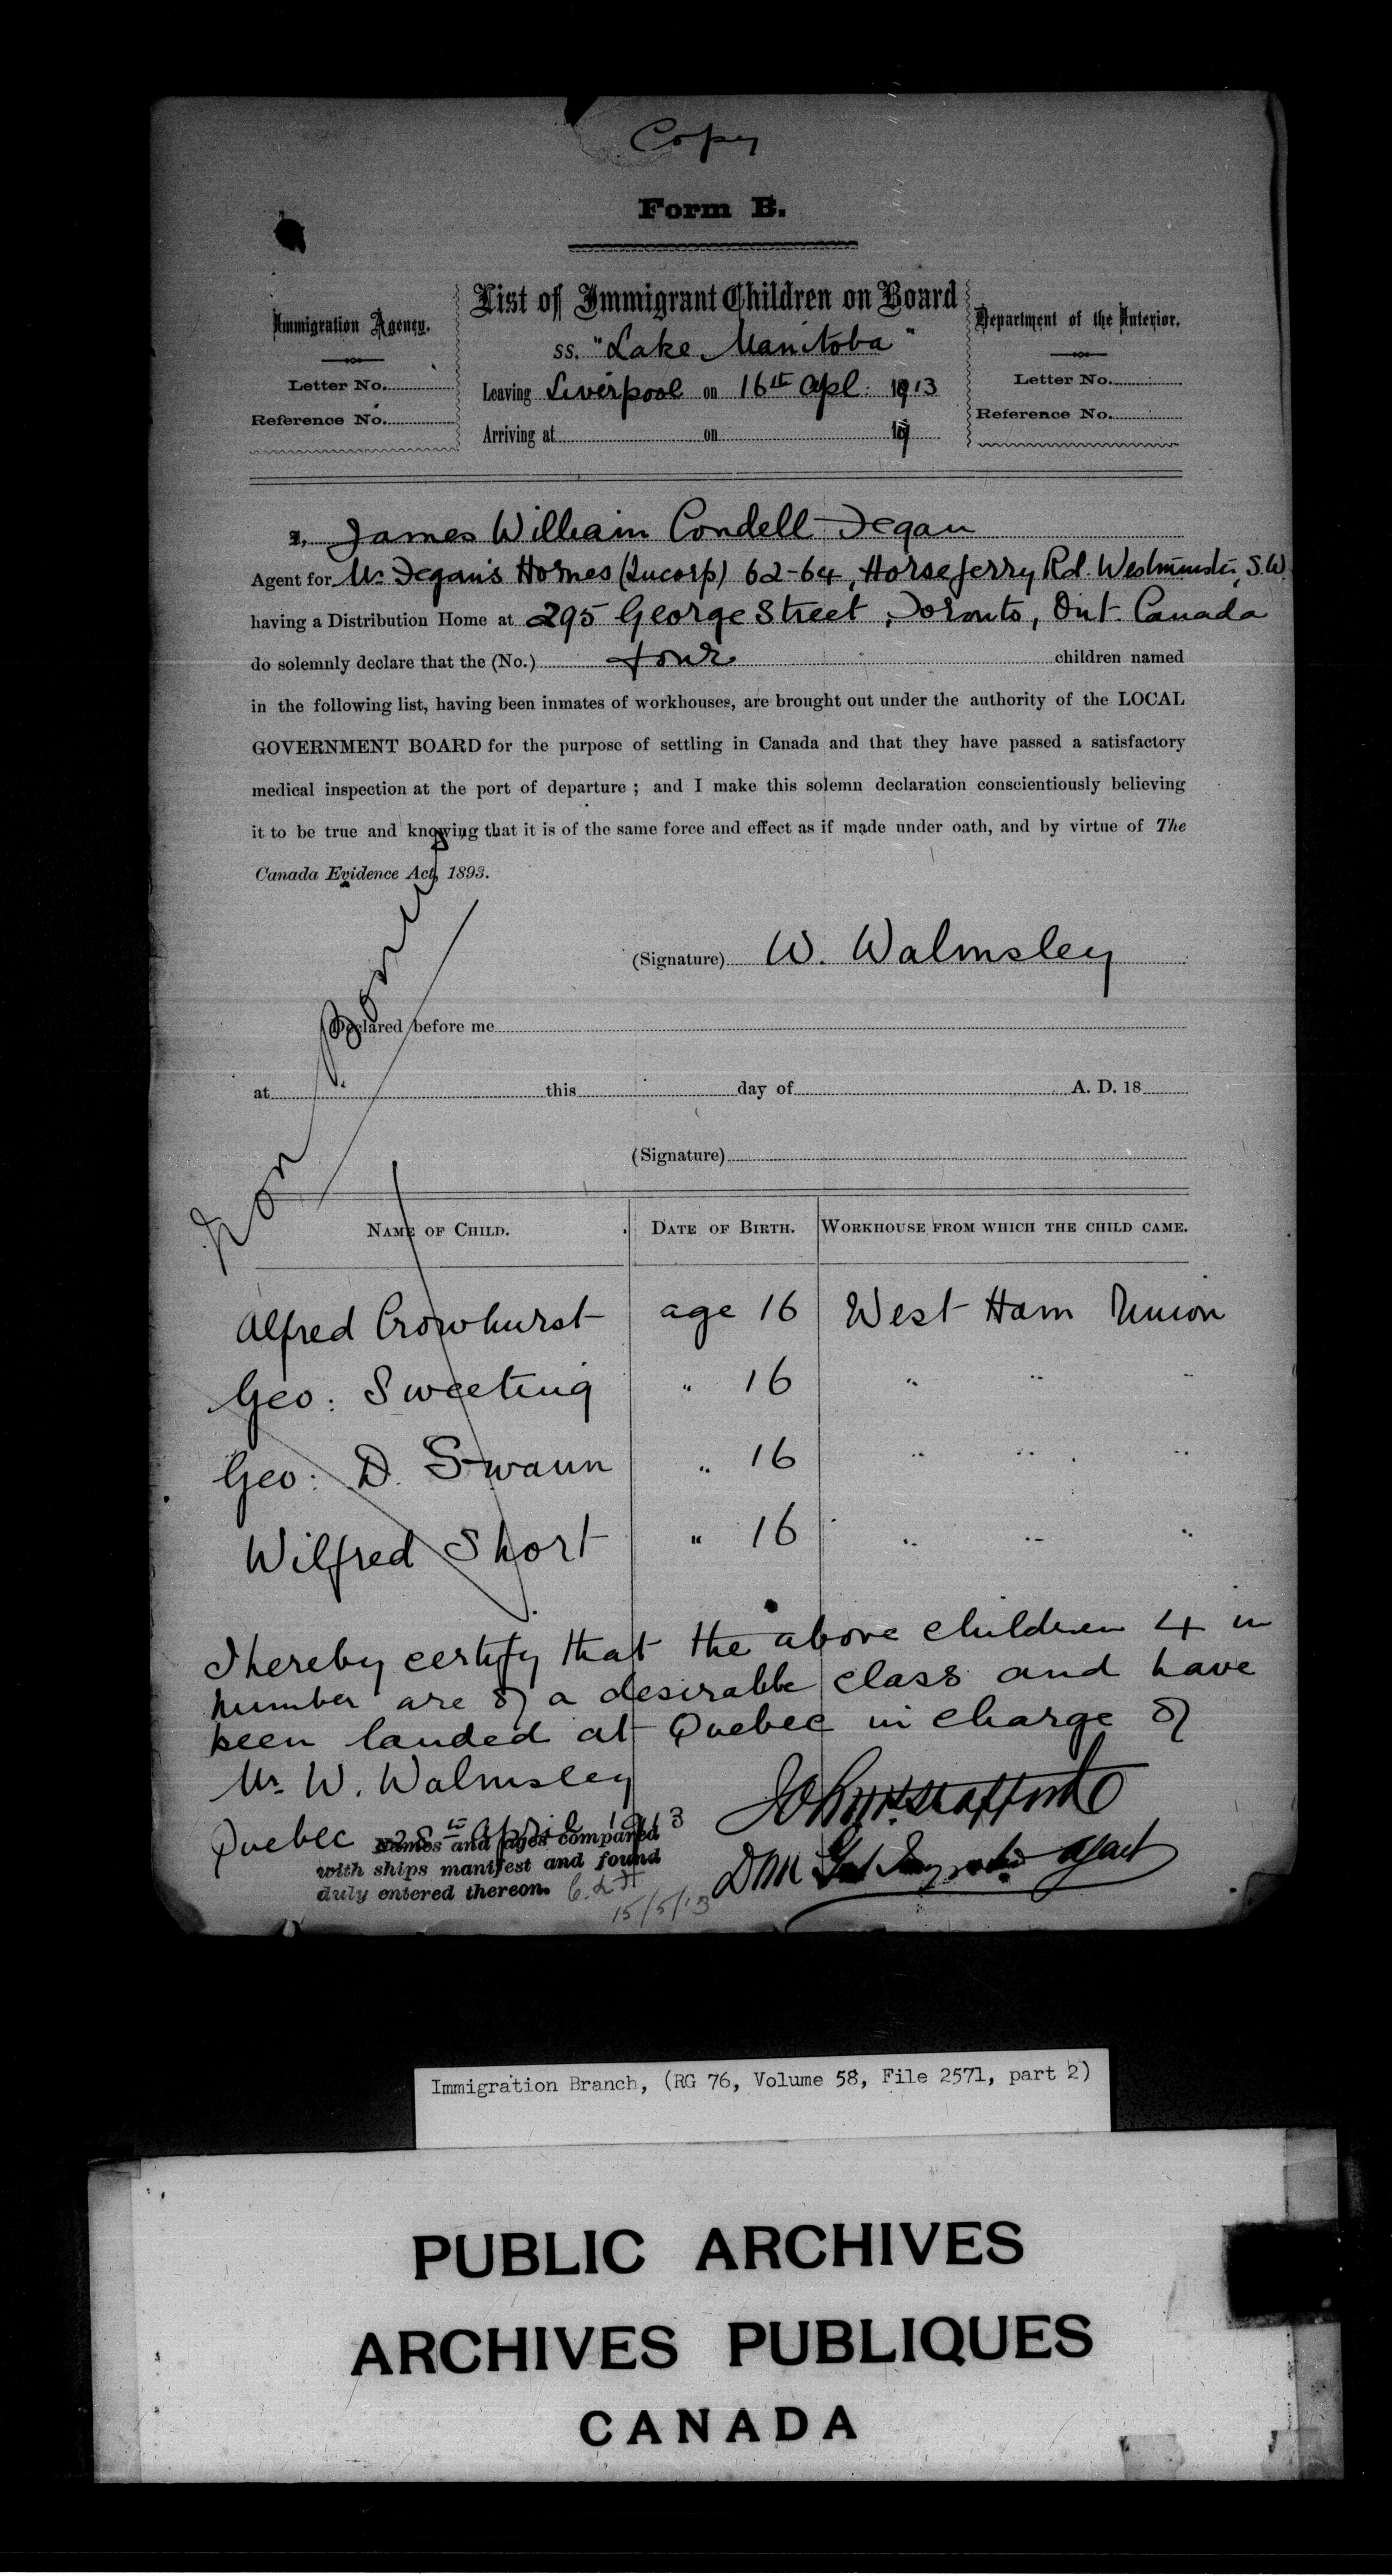 Copy
Form B.
Immigration Agency.
Letter No.
Reference No.
List of Immigrant Children on Board
SS. "Lake Manitoba"
Leaving Liverpool on 16th Apl. 1913
Arriving at on 19
Department of the Interior.
Letter No.
Reference No.
I, James William Condell Fegan
Agent for Mr. Fegan's Homes (Incorp) 62-64, Horseferry Rd. Westminster, S.W.
having a Distribution Home at 295 George Street, Toronto, Ont. Canada
do solemnly declare that the (No.) four children named
in the following list, having been inmates of workhouses, are brought out under the authority of the LOCAL
GOVERNMENT BOARD for the purpose of settling in Canada and that they have passed a satisfactory
medical inspection at the port of departure ; and I make this solemn declaration conscientiously believing
it to be true and knowing that it is of the same force and effect as if made under oath, and by virtue of The
Canada Evidence Act, 1893.
(Signature) W. Walmsley
Declared before me
at this day of A. D. 18
(Signature)
Non Bonus
Name of Child. Date of Birth. Workhouse from which the child came.
Alfred Crowhurst age 16 West Ham Union
Geo: Sweeting " 16 " " "
Geo: D. Swann " 16 " " "
Wilfred Short " 16 " " "
I hereby certify that the above children 4 in
number are of a desirable class and have
been landed at Quebec in charge of
Mr W. Walmsley
Quebec 28th April 1913
Names and ages compared
with ships manifest and found
duly entered thereon. C.L.H
15/5/13
Agent
Immigration Branch, (RG 76, Volume 58, File 2571, part 2)
PUBLIC ARCHIVES
ARCHIVES PUBLIQUES
CANADA